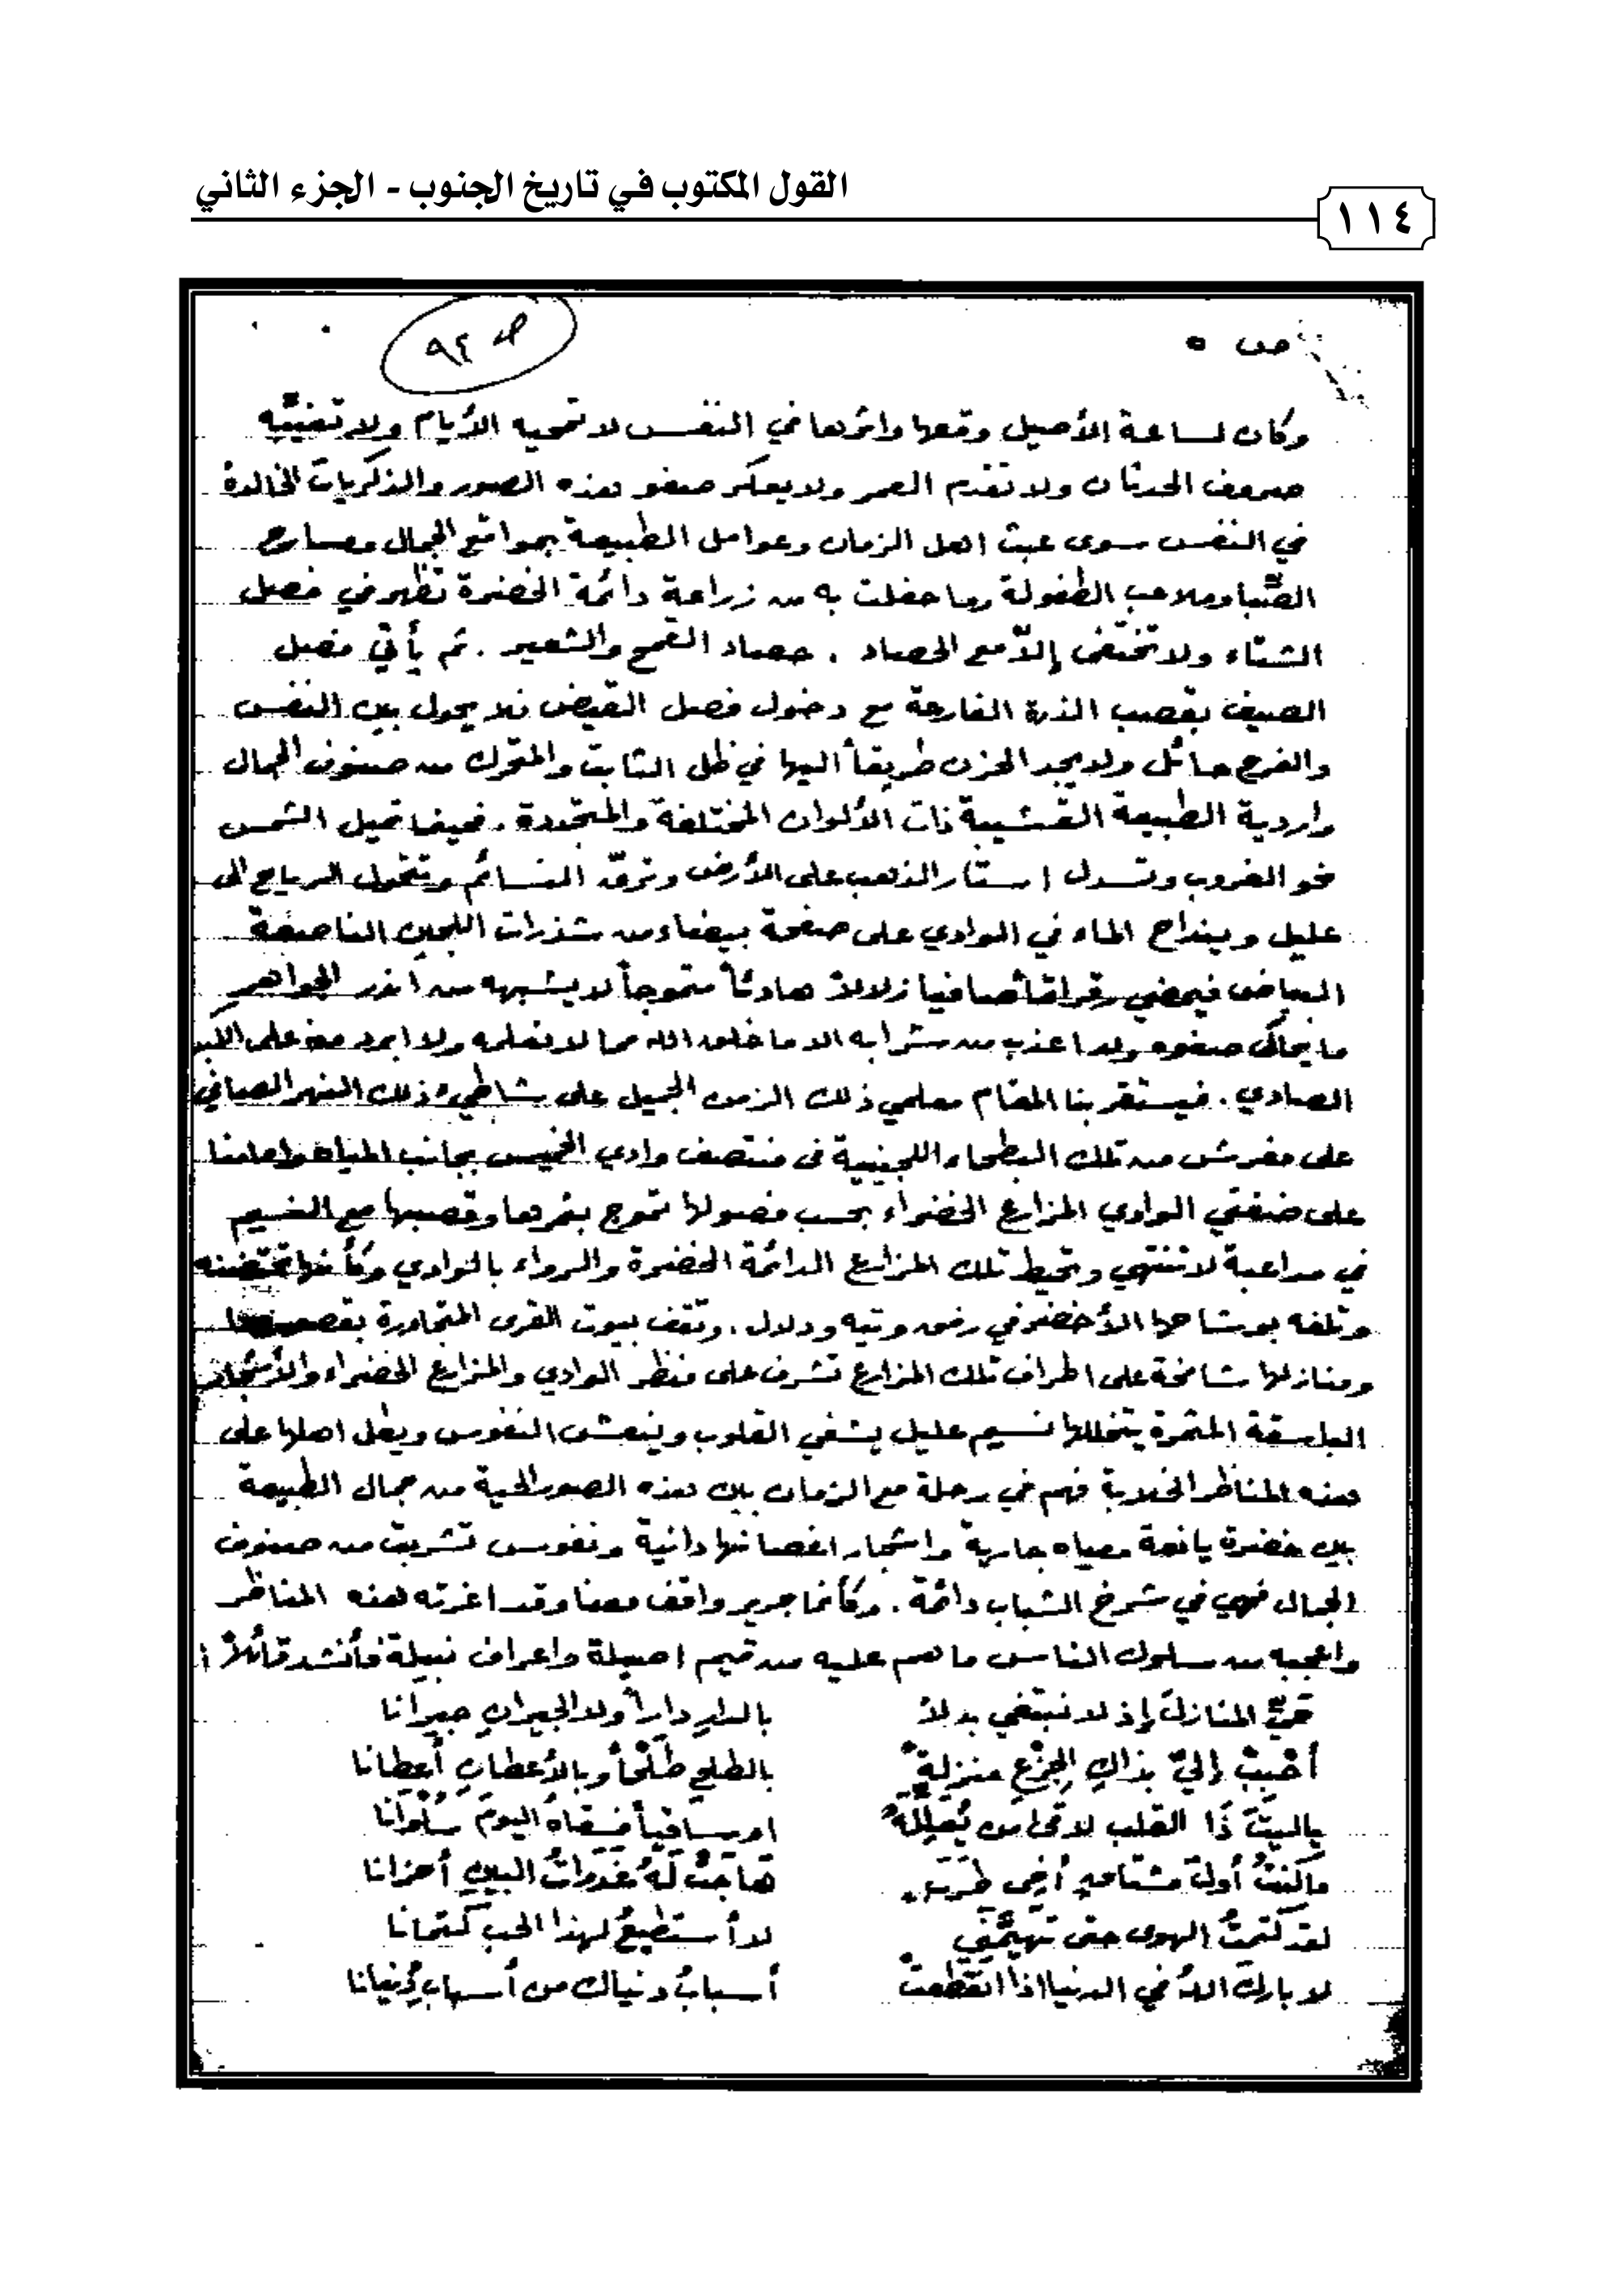 القول المكتوب في تاريخ الجنوب - الجزء الثاني
١١٤
ص ٥
٩٢
وكان لساعة الأصيل وقعها واثرها في النفس لا تمحيه الأيام ولا تغيّبه
صروف الحدثان ولا تقدم العمر ولا يعكر صفو هذه الصور والذكريات الخالدة
في النفس سوى عبث اهل الزمان وعوامل الطبيعة بمواقع الجمال ومسارح
الصِّبا وملاعب الطفولة وما حفلت به من زراعة دائمة الخضرة تظهر في فصل
الشتاء ولا تختفي إلاّ مع الحصاد . حصاد القمح والشعير . ثم يأتي فصل
الصيف بقصب الذرة الفارعة مع دخول فصل القيض فلا يحول بين النفس
والفرح حائل ولا يجد الحزن طريقاً اليها في ظل الثابت والمتحرك من صنوف الجمال
واردية الطبيعة القشيبة ذات الألوان المختلفة والمتجددة . فحينما تميل الشمس
نحو الغروب وتسدل استار الذهب على الأرض وترقّ النسائم وتتحول الرياح الى
عليل وينداح الماء في الوادي على صفحة بيضاء من شذرات اللجين الناصعة
البياض فيمضي رقراقاً صافيا زلالاً هادئاً متموجاً لا يشبهه من أندر الجواهر
ما يحاكى صفوه ولا اعذب من شرابه الا ما خلق الله مما لا نعلمه ولا ابرد منه على الكبد
الصادي . فيستقر بنا المقام معلمي ذلك الزمن الجميل على شاطيء ذلك النهر الصافي
على مفرش من تلك البطحاء اللجينية في منتصف وادي الخميس بجانب المياه وامامنا
على ضفتي الوادي المزارع الخضراء بحسب فصولها تموج بثمرها وقصبها مع النسيم
في مداعبة لا تنتهي وتحيط تلك المزارع الدائمة الخضرة والرواء بالوادي وكأنها تحتضنه
وتلفه بوشاحها الأخضر في رفق وتيه ودلال . وتقف بيوت القرى المتجاورة بقصورها
ومنازلها شامخة على اطراف تلك المزارع تشرف على منظر الوادي والمزارع الخضراء والأشجار
الباسقة المثمرة يتخللها نسيم عليل يشفي القلوب وينعش النفوس ويطل اهلها على
هذه المناظر الخلابة فهم في رحلة مع الزمان بين هذه الصور الحية من جمال الطبيعة
بين خضرة يانعة ومياه جارية واشجار اغصانها دانية ونفوس تشربت من صنوف
الجمال فهي في شرخ الشباب دائمة . وكأنما جرير واقف معنا وقد اغرته هذه المناظر
واعجبه من سلوك الناس ما هم عليه من قيم اصيلة واعراف نبيلة فأنشد قائلاً :
حيِّ المنازلَ إذ لا نبتغي بدلاً بالدارِ داراً ولا الجيرانِ جيرانا
أحْبِبْ إليّ بذاكِ الجِزْعِ منزلةً بالطلحِ طلْحاً وبالأعطانِ أعطانا
ياليتَ ذا القلب لاقى من يُعَلِّلَهُ او ساقياً فسقاهُ اليومَ سُلْوَانا
ما كنتُ أولَ مشتاقٍ أخي طَرَبٍ هاجَتْ لَهُ غدواتُ البينِ أحزانا
لقد كتمتُ الهوى حتى تهيّمَني لا أستطيعُ لهذا الحب كتمانا
لا باركَ اللهُ في الدنيا اذا انقطعتْ أسبابُ دنياك من أسبابِ دُنيانا